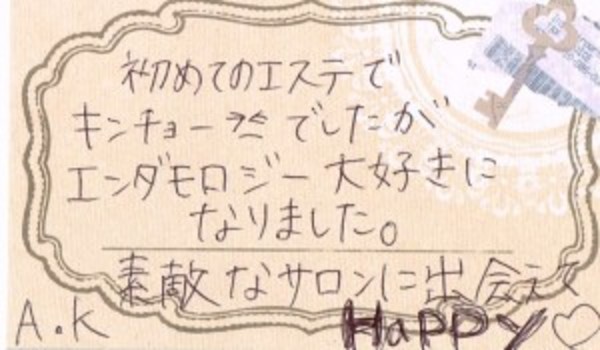 初めてのエステで
キンチョー でしたが
エンダモロジー大好きに
なりました。
素敵なサロンに出会えて
A.K HaPPY♡